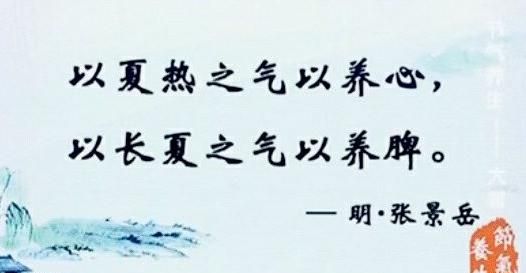 以夏热之气以养心，
以长夏之气以养脾。
— 明·张景岳
節氣
養生